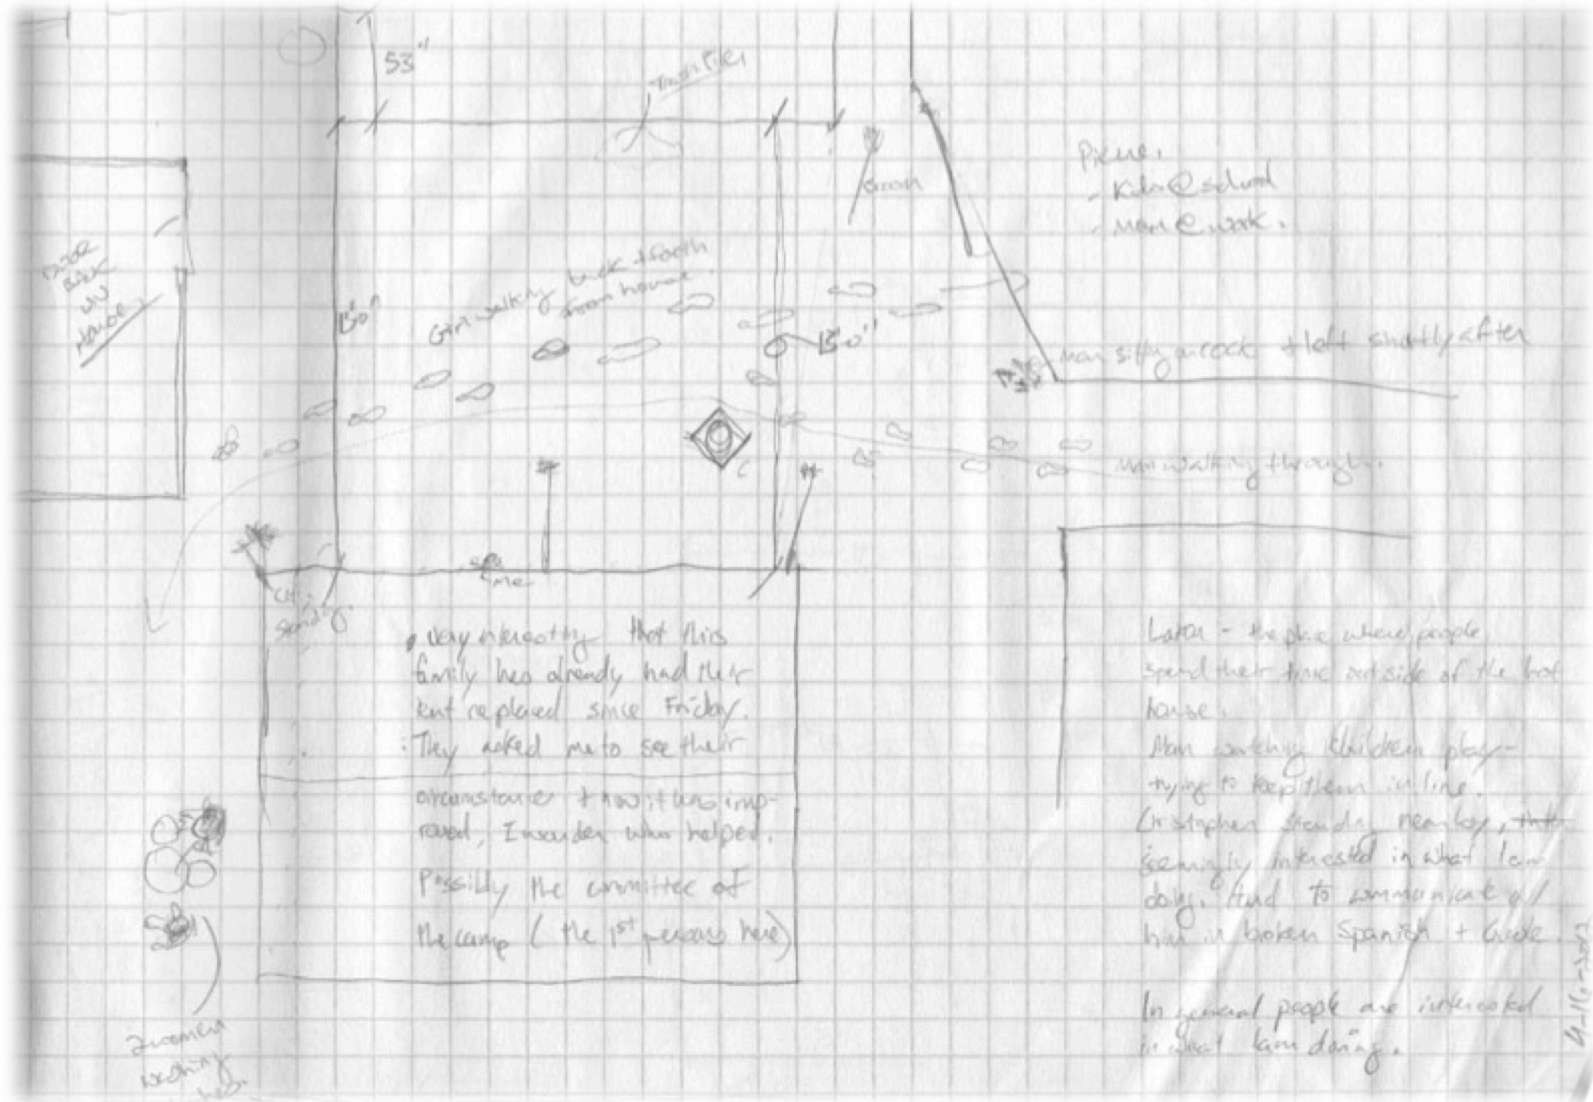 53"
Trash Pile
Groom
- Kids @ school
- Mom @ work.
Girl walking back + forth
from house.
15'0"
15'0"
Man sitting on rock + left shortly after
man walking through.
me
Standing.
very interesting that this
family has already had their
tent replaced since Friday.
They asked me to see their
circumstance + how it has imp-
roved, I wonder who helped.
Possibly the committee of
the camp ( the 1st persons here)
Later - the place where people
spend their time outside of the hot
house.
Man watching children play-
trying to keep them in line.
Christopher standing nearby,
seemingly interested in what I am
doing. tried to communicate w/
him in broken Spanish + Creole.
In general people are interested
in what I am doing.
2 women
washing